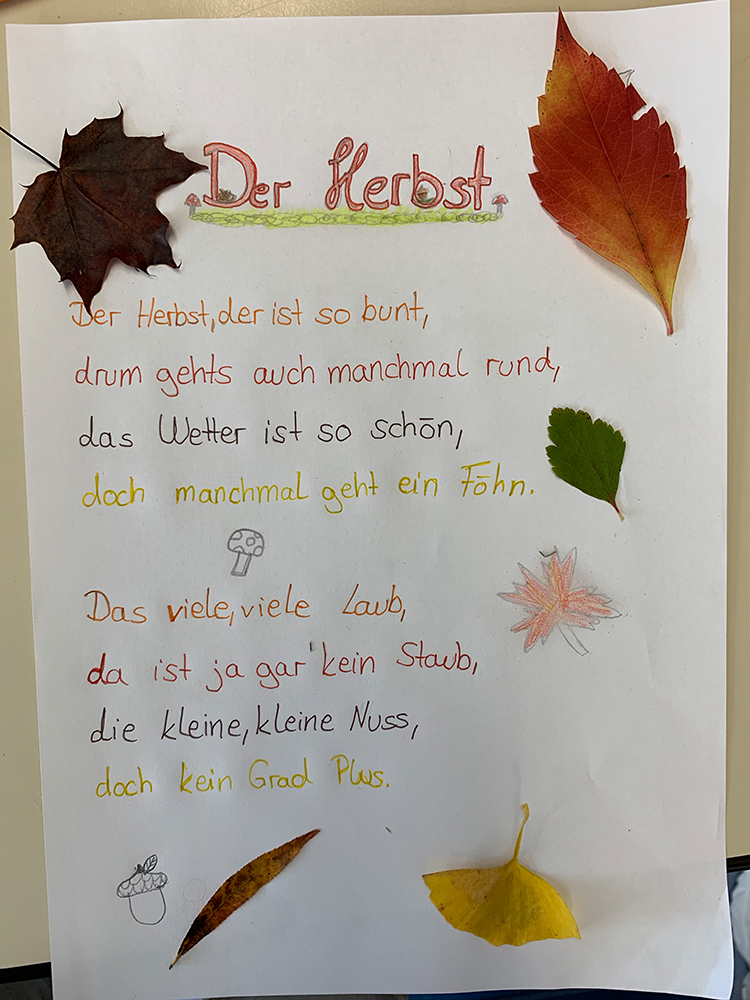 Der Herbst
Der Herbst, der ist so bunt,
drum gehts auch manchmal rund,
das Wetter ist so schön,
doch manchmal geht ein Föhn.
Das viele, viele Laub,
da ist ja gar kein Staub,
die kleine, kleine Nuss,
doch kein Grad Plus.